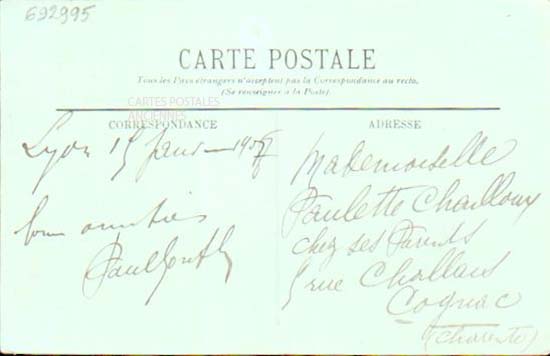 692995
CARTE POSTALE
Tous les Pays étrangers n'acceptent pas la Correspondance au recto.
(Se renseigner à la Poste).
CARTES POSTALES
ANCIENNES
CORRESPONDANCE
Lyon 15 Janv
bonnes amitiés
Paul
ADRESSE
Mademoiselle
Paulette Chailloux
chez ses Parents
rue Challais
Cognac
(Charente)